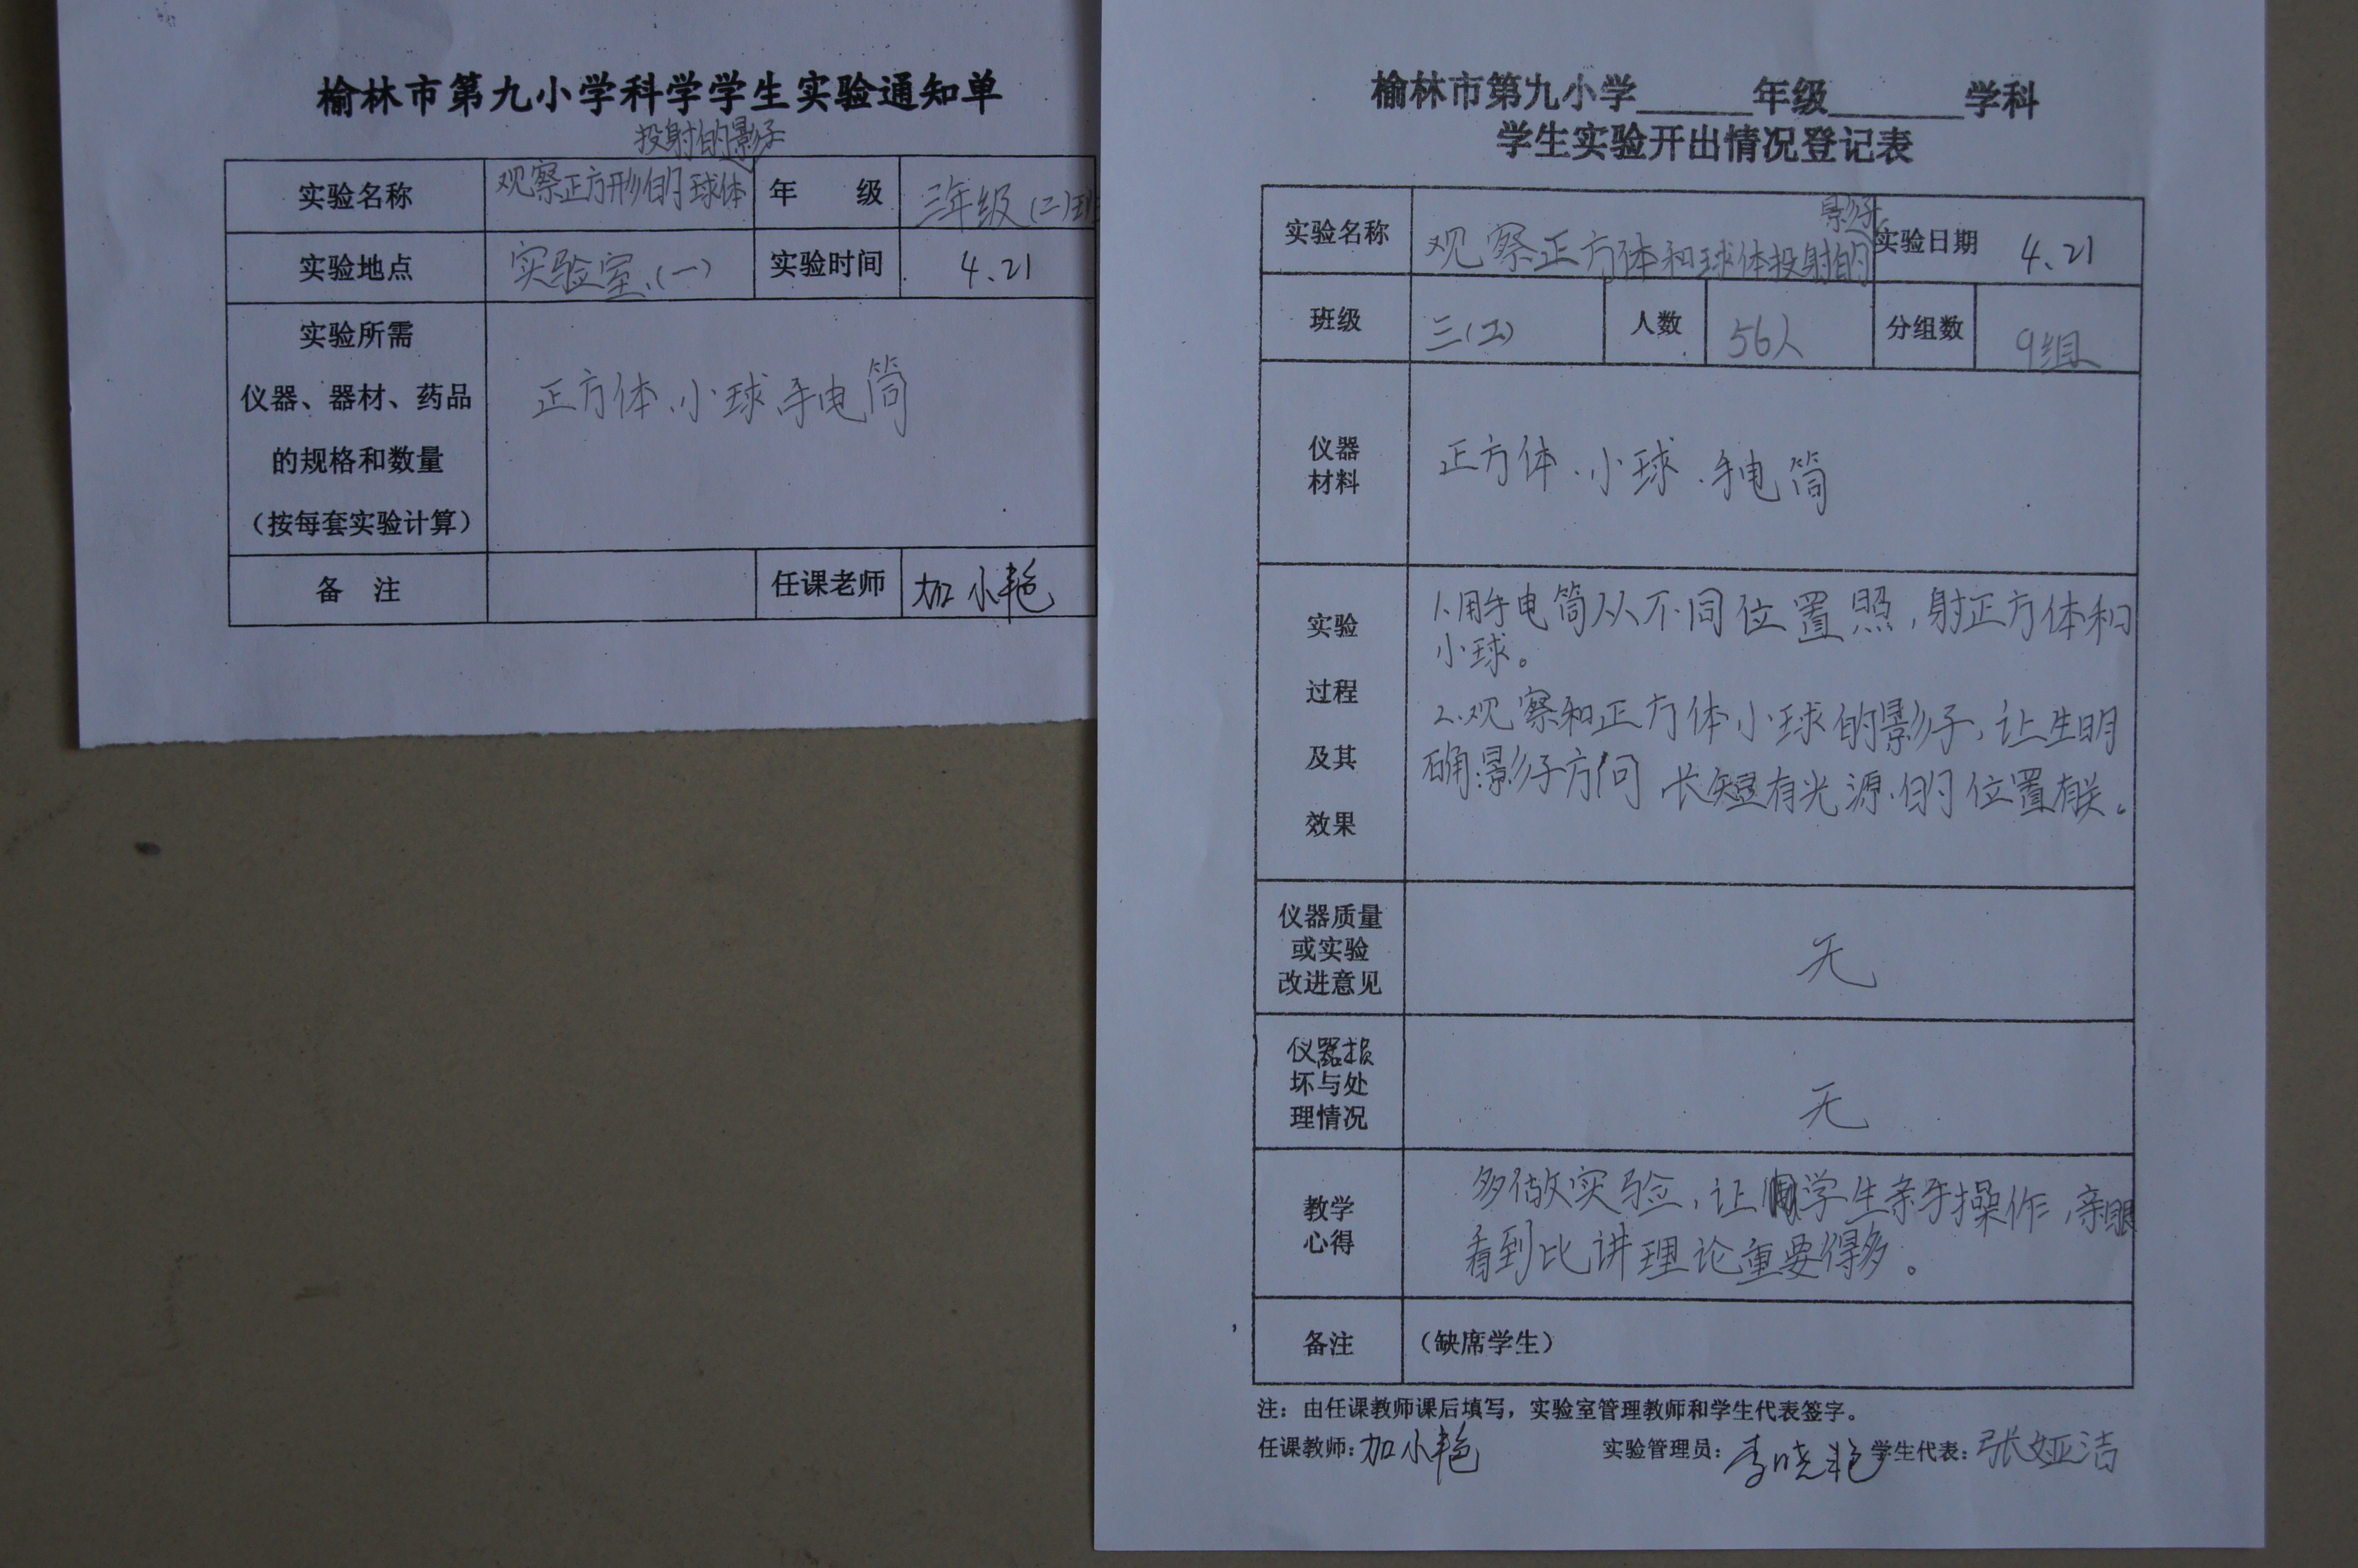 榆林市第九小学科学学生实验通知单
投射的影子
实验名称 观察正方形的球体 年 级 三年级(二)班
实验地点 实验室(一) 实验时间 4.21
实验所需
仪器、器材、药品
的规格和数量
（按每套实验计算）
正方体、小球、手电筒
备 注 任课老师 加小艳
榆林市第九小学______年级_______学科
学生实验开出情况登记表
影子
实验名称 观察正方体和球体投射的 实验日期 4.21
班级 三(2) 人数 56人 分组数 9组
仪器
材料
正方体、小球、手电筒
实验
过程
及其
效果
1.用手电筒从不同位置照,射正方体和
小球。
2.观察和正方体小球的影子,让生明
确影子方向 长短有光源的位置有关。
仪器质量
或实验
改进意见
无
仪器损
坏与处
理情况
无
教学
心得
多做实验,让学生亲手操作,亲眼
看到比讲理论重要得多。
备注 （缺席学生）
注：由任课教师课后填写，实验室管理教师和学生代表签字。
任课教师：加小艳 实验管理员：李晓艳 学生代表：张娅洁